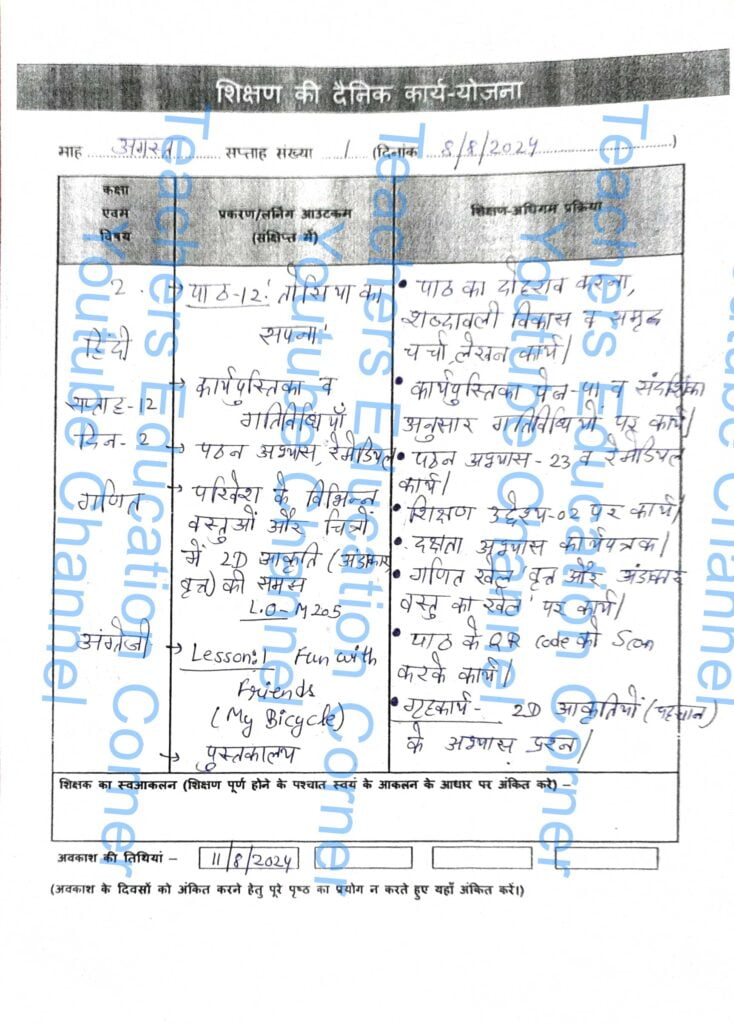 शिक्षण की दैनिक कार्य-योजना
माह अगस्त सप्ताह संख्या 1 (दिनांक 8/8/2024)
कक्षा
एवम
विषय
प्रकरण/लर्निंग आउटकम
(संक्षिप्त में)
शिक्षण-अधिगम प्रक्रिया
2
हिंदी
सप्ताह-12
दिन-2
गणित
अंग्रेजी
→ पाठ-12: तोसिया का
सपना'
→ कार्यपुस्तिका व
गतिविधियाँ
→ पठन अभ्यास, रेमेडियल
→ परिवेश के विभिन्न
वस्तुओं और चित्रों
में 2D आकृति (अंडाकार,
वृत्त) की समझ
L.O-M205
→ Lesson:1 Fun with
Friends
(My Bicycle)
→ पुस्तकालय
• पाठ का दोहराव करना,
शब्दावली विकास व समृद्ध
चर्चा, लेखन कार्य।
• कार्यपुस्तिका पेज-41 व संदर्शिका
अनुसार गतिविधियों पर कार्य।
• पठन अभ्यास-23 व रेमेडियल
कार्य।
• शिक्षण उद्देश्य-02 पर कार्य।
• दक्षता अभ्यास कार्यपत्रक।
• गणित खेल 'वृत्त और अंडाकार
वस्तु का खेल' पर कार्य।
• पाठ के QR code को Scan
करके कार्य।
• गृहकार्य- 2D आकृतियों (पहचान)
के अभ्यास प्रश्न।
शिक्षक का स्वआकलन (शिक्षण पूर्ण होने के पश्चात स्वयं के आकलन के आधार पर अंकित करे) –
अवकाश की तिथियां – 11/8/2024
(अवकाश के दिवसों को अंकित करने हेतु पूरे पृष्ठ का प्रयोग न करते हुए यहाँ अंकित करें।)
Teachers Education Corner
Youtube Channel
Teachers Education Corner
Youtube Channel
Teachers Education Corner
Youtube Channel